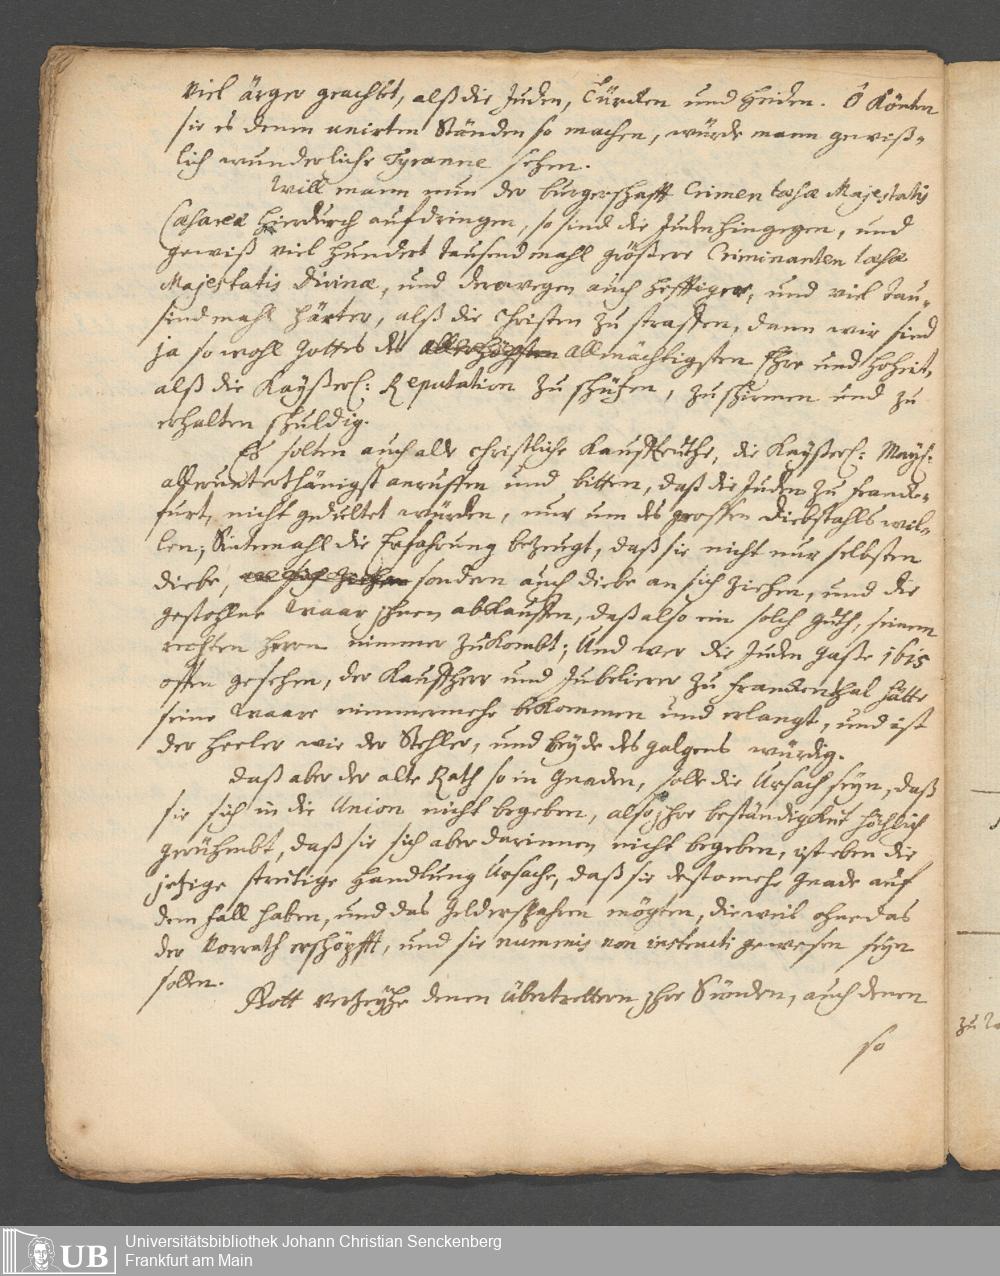 viel ärger geachtet, alß die Juden, Türcken und Heiden. O Könten
sie es denen unirten Ständen so machen, würde mann gewiß-
lich wunderliche Tyranne sehen.
Will mann nun der burgerschafft Crimen læsæ Majestatis
Cæsareæ hierdurch aufdringen, so sind die Juden hingegen, und
gewiß viel hundert tausendmahl größere Criminanten læsæ
Majestatis Divinæ, und derowegen auch hefftiger, und viel tau-
sendmahl härter, alß die Christen zu straffen, dann wir sind
ja so wohl Gottes des allerhöchsten allmächtigsten Ehre und Hoheit,
alß die Kayßerl: Reputation zu schüzen, zu schirmen und zu
erhalten schuldig.
Es solten auch alle christliche Kauffleuthe, die Kayßerl: Mayst:
allerunterthänigst anruffen und bitten, daß die Juden zu Franck-
furt, nicht gedultet würden, nur um des grossen Diebstahls wil-
len; Sintemahl die Erfahrung bezeugt, daß sie nicht nur selbsten
diebe, sondern auch diebe an sich ziehen, und die
gestohlne Waar ihnen abkauffen, daß also ein solch guth, seinem
rechten Herrn nimmer zukombt; Und wer die Juden Gaße 1615
offen gesehen, der Kauffherr und Jubelierer zu Franckenthal hätte
seine Waare nimmermehr bekommen und erlangt, und ist
der Heeler wie der Stehler, und beyde des galgens würdig.
Daß aber der alte Rath so in Gnaden, solle die Ursach seyn, daß
sie sich in die Union nicht begeben, also ihre beständigkeit höchlich
gerühmbt, daß sie sich aber darinnen nicht begeben, ist eben die
jetzige streitige Handlung Ursache, daß sie destomehr Gnade auf
dem fall haben, und das Gelder sparen mögen, dieweil ohne das
der Vorrath erschöpfft, und sie nummis non instructi gewesen seyn
sollen.
Gott verzeyhe denen Übertrettern ihre Sünden, auch denen
so
zu
UB
Universitätsbibliothek Johann Christian Senckenberg
Frankfurt am Main